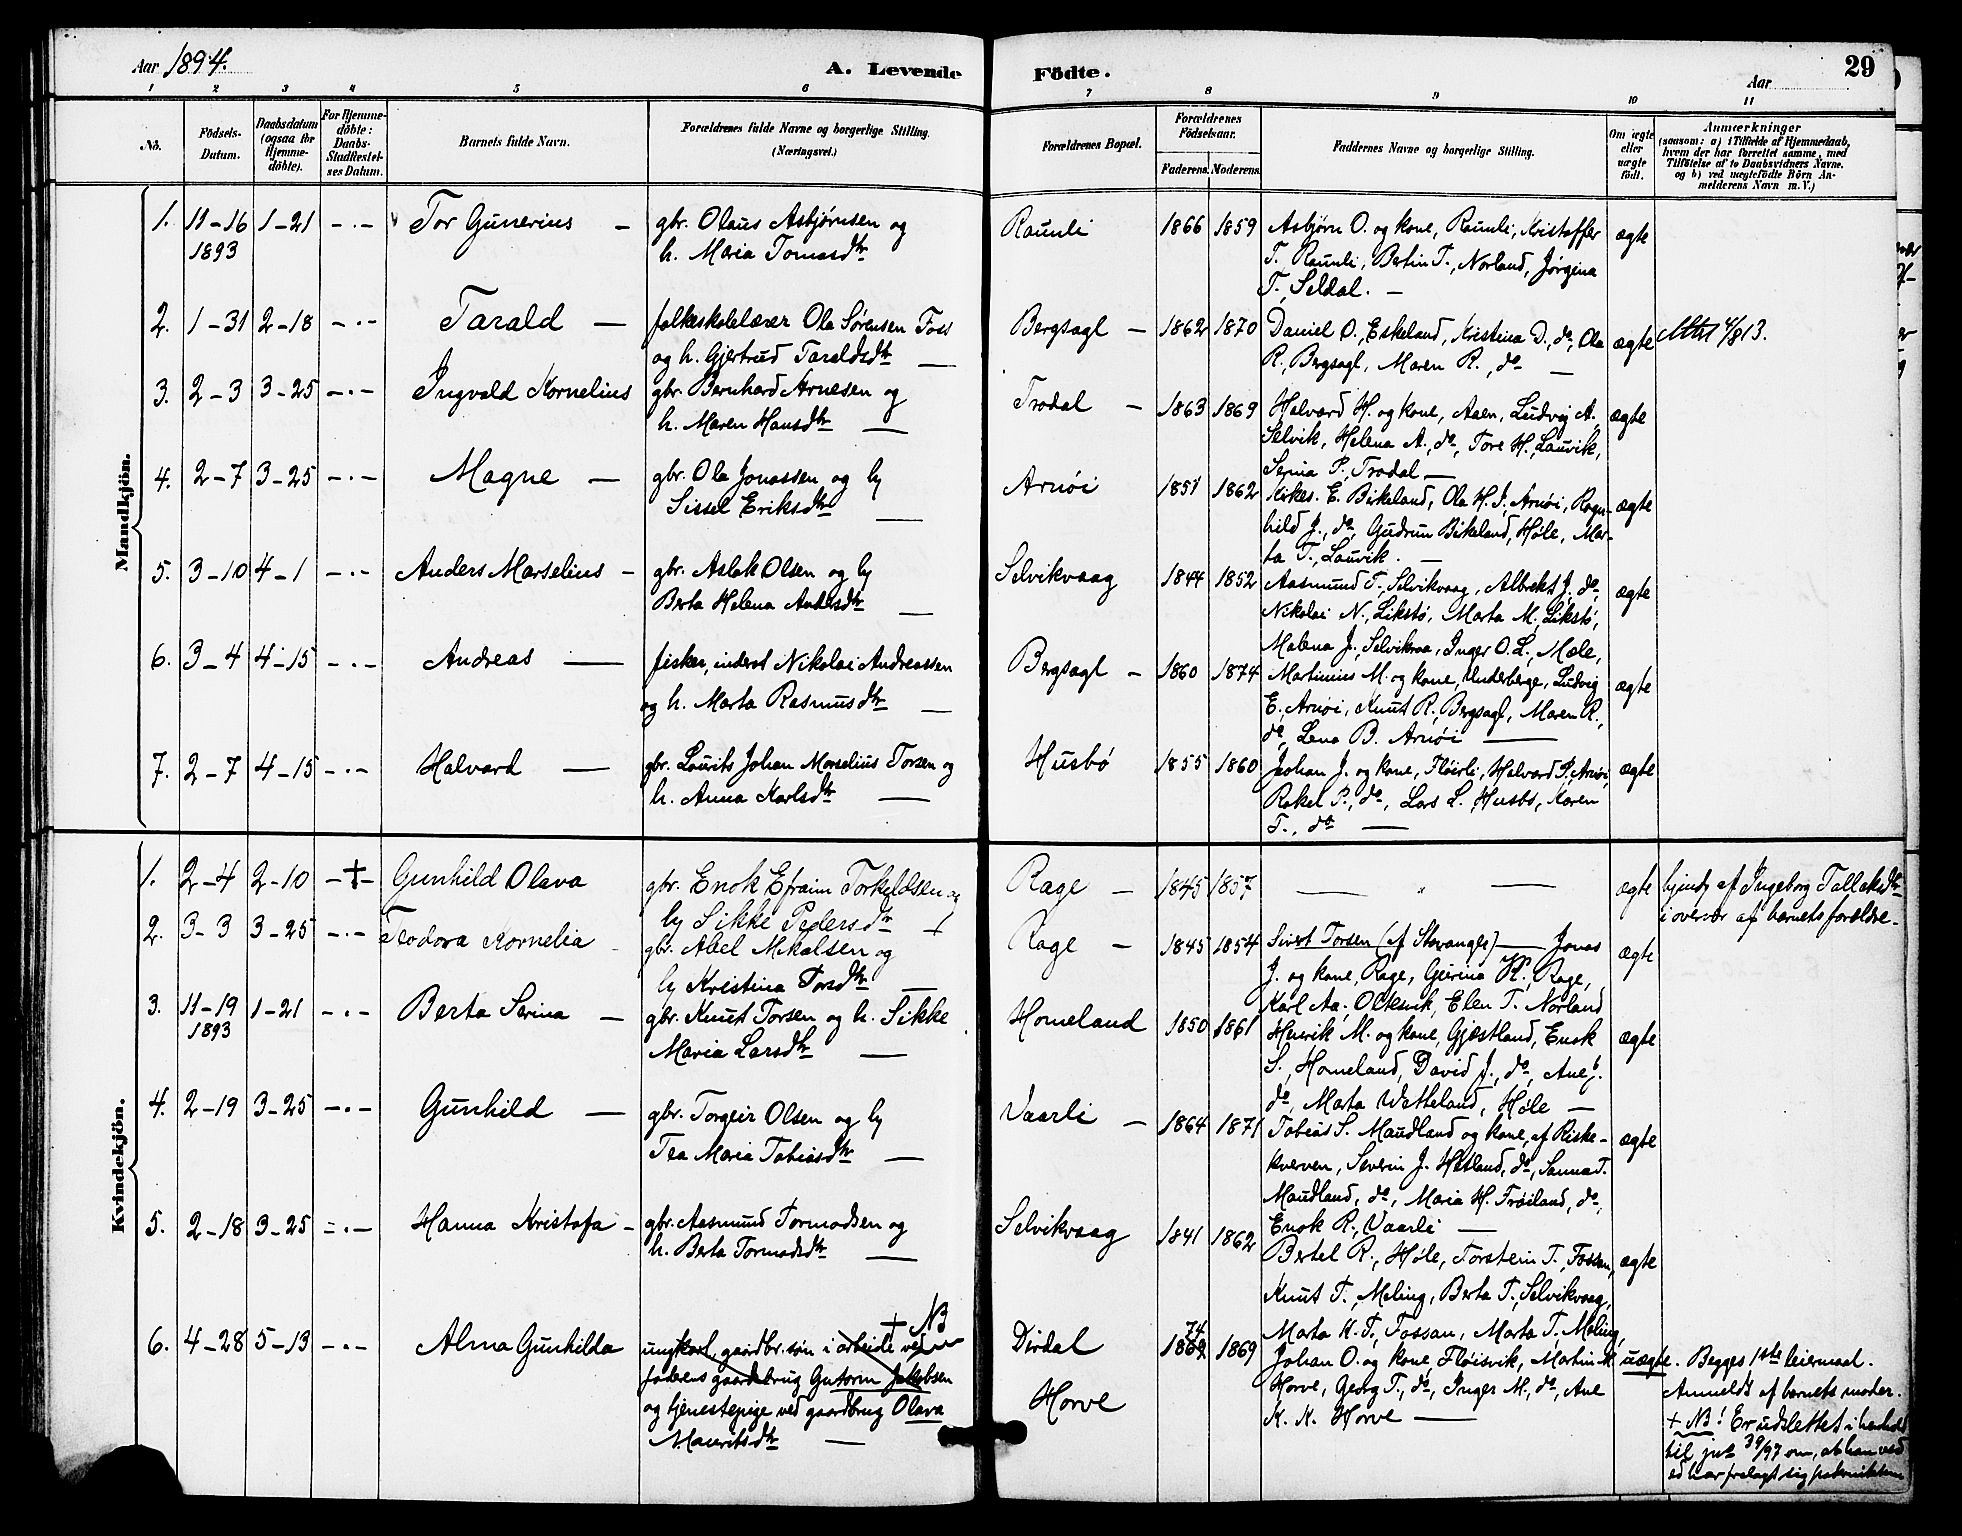 Aar 1894.
A. Levende
Födte.
Aar
29
1 2 3 4 5 6 7 8 9 10 11
No.
Födsels-
Datum.
Daabsdatum
(ogsaa for
Hjemme-
döbte).
For Hjemme-
döbte:
Daabs-
Stadfæstel-
ses Datum.
Barnets fulde Navn.
Forældrenes fulde Navne og borgerlige Stilling.
(Næringsvei.)
Forældrenes Bopæl.
Forældrenes
Födselsaar.
Faderens. Moderens.
Faddernes Navne og borgerlige Stilling.
Om ægte
eller
uægte
födt.
Anmærkninger
(saasom: a) i Tilfælde af Hjemmedaab,
hvem der har forrettet samme, med
Tilföielse af to Daabsvidners Navne.
og b) ved uægtefödte Börn An-
melderens Navn m. V.)
Mandkjön.
1. 11-16 1893 1-21 -"- Tor Gunerius -
gbr. Olaus Asbjørnsen og
h. Maria Tomasdtr
Raunli 1866 1859
Asbjørn O. og kone, Raunli, Kristoffer
T. Raunli, Bertin T., Norland, Jørgina
T., Seldal. -
ægte
2. 1-31 2-18 -"- Tarald -
folkeskolelærer Ola Sørensen Foss
og h. Gjertrud Taraldsdtr -
Bergsagl - 1862 1870
Daniel O., Eskeland, Kristina D., do, Ola
R., Bergsagl, Maren R., do -
ægte
Attest 4/8 13.
3. 2-3 3-25 -"- Ingvald Kornelius
gbr. Bernhard Arnesen og
h. Maren Hansdtr -
Trodal - 1863 1869
Halvard H. og kone, Aaen, Ludvig A.
Selvik, Helena A., do, Tore H., Lauvik,
Serina P., Trodal -
ægte
4. 2-7 3-25 -"- Magne -
gbr. Ola Jonassen og h
Sissel Eriksdtr -
Arnøi 1851 1862
Kikes. E. Birkeland, Ola H. J., Arnøi, Ragn-
hild J., do, Gudrun Birkeland, Høle, Mar-
ta T., Lauvik. -
ægte
5. 3-10 4-1 -"- Anders Marselius -
gbr. Aslak Olsen og h
Berta Helena Andersdtr -
Selvikvaag 1844 1852
Aasmund T., Selvikvaag, Albrekt J. do,
Nikolai N., Likstø, Marta M., Likstø,
Malena J., Selvikvaa, Inger O. L., Mæle,
ægte
6. 3-4 4-15 -"- Andreas -
fisker, inderst Nikolai Andreassen
og h. Marta Rasmusdtr -
Bergsagl - 1860 1874
Martinius M. og kone, Underberge, Ludvig
E., Arnøi, Knut R., Bergsagl, Maren R.,
do, Lena B. Arnøi -
ægte
7. 2-7 4-15 -"- Halvard -
gbr. Laurits Johan Marselius Torsen og
h. Anna Karlsdtr -
Husbø 1855 1860
Johan J. og kone, Fløirli, Halvard P., Arnøi,
Rakel P., do, Lars L., Husbø, Karen
T., do -
ægte
Kvindekjön.
1. 2-4 2-10 -+- Gunhild Olava
gbr. Enok Efraim Torkeldsen og
h Sikke Pedersdtr +
Rage - 1845 1857
- " -
ægte
hjmdp af Ingeborg Tallaksdtr
i overvær af barnets forældre -
2. 3-3 3-25 -"- Teodora Kornelia -
gbr. Abel Mikalsen og
h Kristina Torsdtr -
Rage - 1845 1854
Sivert Torsen (af Stavanger) - Jonas
J. og kone, Rage, Geirina K., Rage,
Karl Aa., Oltesvik, Elen T. Norland
ægte
3. 11-19 1893 1-21 -"- Berta Serina -
gbr. Knut Torsen og h. Sikke
Maria Larsdtr -
Homeland 1850 1861
Henrik M. og kone, Gjæstland, Enok
S., Homeland, David J., do, Ane J.
do, Marta Watteland, Høle -
ægte
4. 2-19 3-25 -"- Gunhild -
gbr. Torgeir Olsen og h
Tea Maria Tobiasdtr -
Vaarli - 1864 1871
Tobias S. Maudland og kone, af Riske-
kverven, Severin J. Hetland, do, Sanna T.
Maudland, do, Maria H. Frøiland, do,
Enok R., Vaarli -
ægte
5. 2-18 3-25 -"- Hanna Kristofa -
gbr. Aasmund Tormodsen og
h. Berta Tormodsdtr -
Selvikvaag 1841 1862
Bertel R., Høle, Torstein T., Fossan,
Knut T., Meling, Berta T., Selvikvaag,
Marta K. T., Fossan, Marta T. Meling,
ægte
6. 4-28 5-13 -"- Alma Gunhilda
+ NB
ungkarl, gaardbr. søn i arbeide ved
faderens gaardsbrug Gutorm Jakobsen
og tjenestepige ved gaardbrug Olava
Mauritsdtr -
Dirdal
Horve
74
1862 1869
Johan O. og kone, Fløisvik, Martin K
Horve, Georg T., do, Inger M., do, Ane
K. K. Horve -
uægte.
Begges 1ste leiermaal.
Anmeldt af barnets moder.
+ NB! Er udslettet i henhold
til just 30/97 om, at han ved
ed har fralagt sig paterniteten